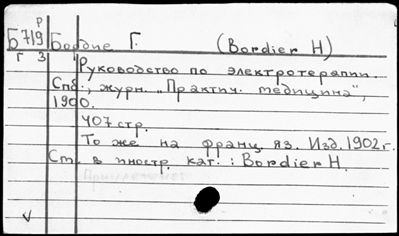 Р
Б719 Бордие Г. (Bordier H)
Г 3 1
Руководство по электротерапии.
Спб., журн. „Практич. медицина",
1900.
407 стр.
То же на франц. яз. Изд. 1902 г.
См. в иностр. кат.: Bordier H.
V